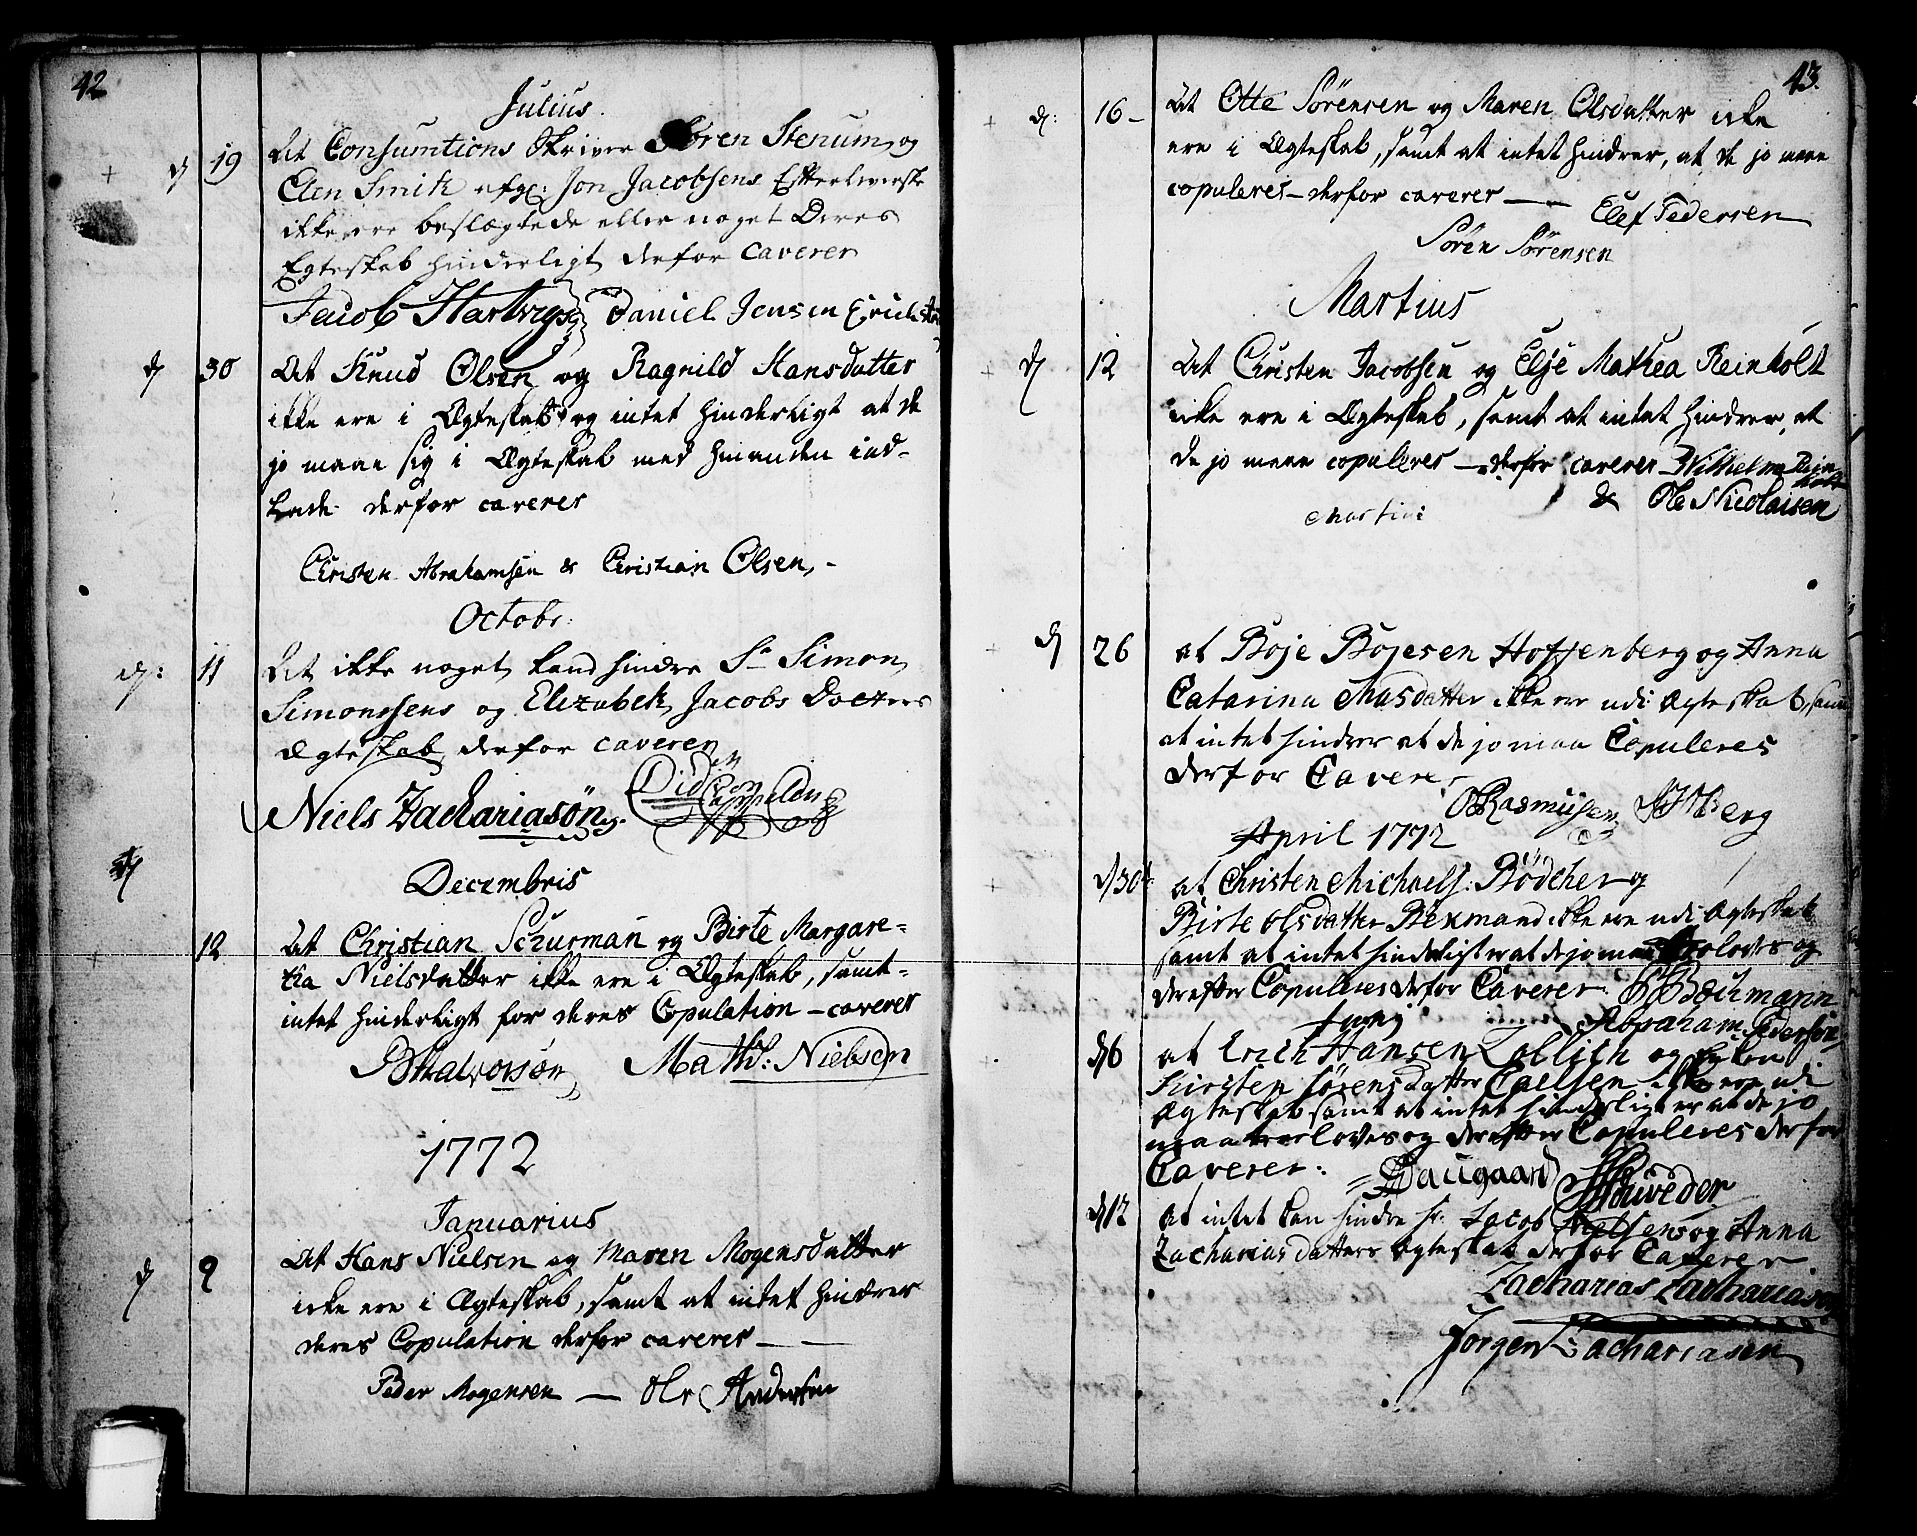 42
Julius.
d 19 At Consumtions Skriver Søren Stenum og
Elen Smith afg: Jon Jacobsens Efterleverske
ikke ere beslægtede eller noget Deres
Egteskab hinderligt derfor caverer
Jacob Hartvigs Daniel Jensen
d 30 At Knud Olsen og Ragnild Hansdatter
ikke ere i Ægteskab og intet hinderligt at de
jo maae sig i Ægteskab med hinanden ind-
lade derfor caverer
Christen Abrahamsen & Christian Olsen,-
Octobr:
d: 11 At ikke noget kand hindre Sr Simon
Simonssens og Elizabeth Jacobs Docters
Ægteskab derfor caverer
Niels Zachariasøn
d
Decembris
12 At Christian Schurman og Birte Margare-
tha Nielsdatter ikke ere i Ægteskab, samt-
intet hinderligt for deres Copulation - caverer
Halvorsøn Math: Nielsen
1772
Januarius
d 9 At Hans Nielsen og Maren Mogensdatter
icke ere i Ægteskab, samt at intet hindrer
deres Copulation derfor caverer -
Peder Mogensen - Ole Andersen
43.
d: 16- At Otte Sørensen og Maren Olsdatter icke
ere i Ægteskab, samt at intet hindrer, at de jo maae
copuleres - derfor caverer - Elef Pedersen
Sören Sörensen
Martius
d 12 At Christen Jacobsen og Elsje Mathea Reinholt
icke ere i Ægteskab, samt at intet hindrer, at
de jo maae copuleres - derfor caverer Wilhelm Rein
holt
& Ole Nicolaisen
Martii
d 26 at Boje Bojesen Hoffenberg og Anna
Catarina Masdatter ikke ere udi Ægteskab, samt
at intet hindrer at de jo maa Copuleres
derfor Caverer
Rasmusen Berg
April 1772
d 30 at Christen Michaels: Bödcher og
Birte Olsdatter Bexmand ikke ere udi Ægteskab
samt at intet hinderligt er at de jo maa troloves og
derefter Copuleres derfor Caverer. Bochmann
Abraham Pedersön
Junij
d 6 at Erich Hansen Zollich og
Kirsten Sörensdatter Caelsen ikke ere udi
Ægteskab samt at intet hinderligt er at de jo
maa troloves og derefter Copuleres derfor
Caverer: Daugaard Schröder
d 12 At intet kan hindre Sr. Jacob Nielsens og Anna
Zacharias datters Ægteskab derfor Caverer
Zacharias Zachariasen
Jorgen Zachariasen